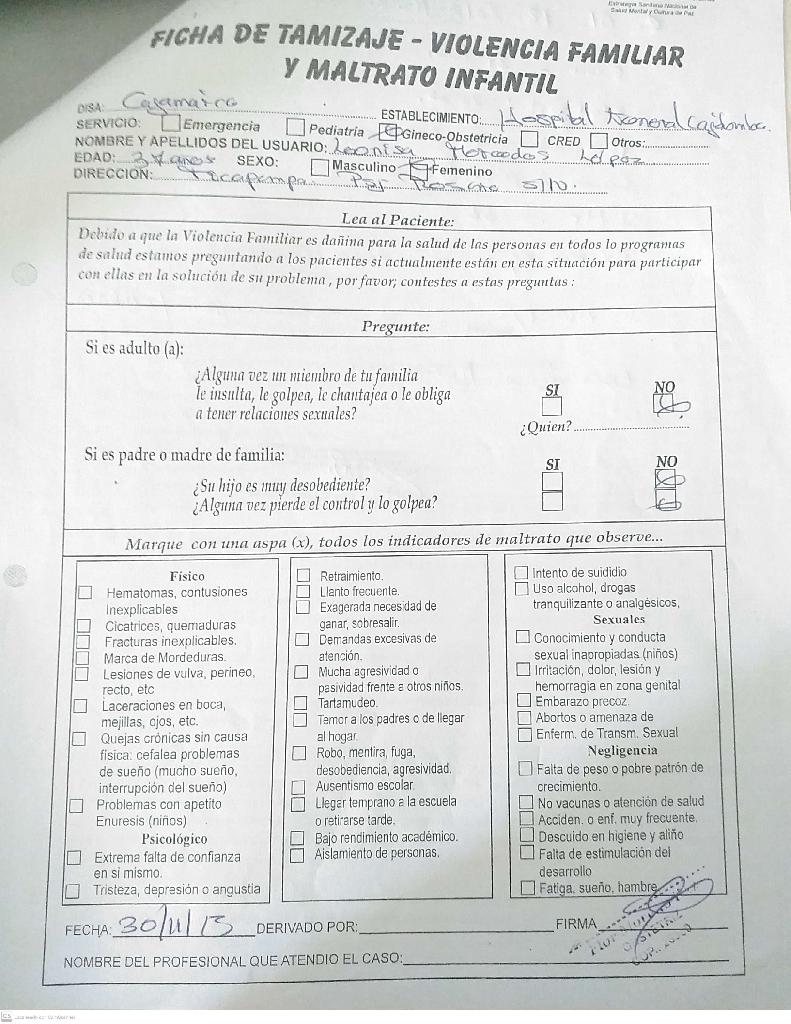 Estrategia Sanitaria Nacional de
Salud Mental y Cultura de Paz
FICHA DE TAMIZAJE - VIOLENCIA FAMILIAR
Y MALTRATO INFANTIL
DISA: Cajamarca ESTABLECIMIENTO: Hospital General
SERVICIO: Emergencia Pediatria Gineco-Obstetricia CRED Otros:
NOMBRE Y APELLIDOS DEL USUARIO: Mercedes López
EDAD: años SEXO: Masculino Femenino
DIRECCIÓN: S/N.
Lea al Paciente:
Debido a que la Violencia Familiar es dañina para la salud de las personas en todos lo programas
de salud estamos preguntando a los pacientes si actualmente están en esta situación para participar
con ellas en la solución de su problema , por favor; contestes a estas preguntas :
Pregunte:
Si es adulto (a):
¿Alguna vez un miembro de tu familia
le insulta, le golpea, le chantajea o le obliga SI NO
a tener relaciones sexuales?
¿Quien?
Si es padre o madre de familia:
SI NO
¿Su hijo es muy desobediente?
¿Alguna vez pierde el control y lo golpea?
Marque con una aspa (x), todos los indicadores de maltrato que observe...
Físico
Hematomas, contusiones
Inexplicables
Cicatrices, quemaduras
Fracturas inexplicables.
Marca de Mordeduras.
Lesiones de vulva, perineo,
recto, etc
Laceraciones en boca,
mejillas, ojos, etc.
Quejas crónicas sin causa
física: cefalea problemas
de sueño (mucho sueño,
interrupción del sueño)
Problemas con apetito
Enuresis (niños)
Psicológico
Extrema falta de confianza
en si mismo.
Tristeza, depresión o angustia
Retraimiento.
Llanto frecuente.
Exagerada necesidad de
ganar, sobresalir.
Demandas excesivas de
atención.
Mucha agresividad o
pasividad frente a otros niños.
Tartamudeo.
Temor a los padres o de llegar
al hogar.
Robo, mentira, fuga,
desobediencia, agresividad.
Ausentismo escolar.
Llegar temprano a la escuela
o retirarse tarde.
Bajo rendimiento académico.
Aislamiento de personas.
Intento de suididio
Uso alcohol, drogas
tranquilizante o analgésicos,
Sexuales
Conocimiento y conducta
sexual inapropiadas (niños)
Irritación, dolor, lesión y
hemorragia en zona genital
Embarazo precoz.
Abortos o amenaza de
Enferm. de Transm. Sexual
Negligencia
Falta de peso o pobre patrón de
crecimiento.
No vacunas o atención de salud
Acciden. o enf. muy frecuente.
Descuido en higiene y aliño
Falta de estimulación del
desarrollo
Fatiga, sueño, hambre
FECHA: 30/11/15 DERIVADO POR: FIRMA
NOMBRE DEL PROFESIONAL QUE ATENDIO EL CASO: